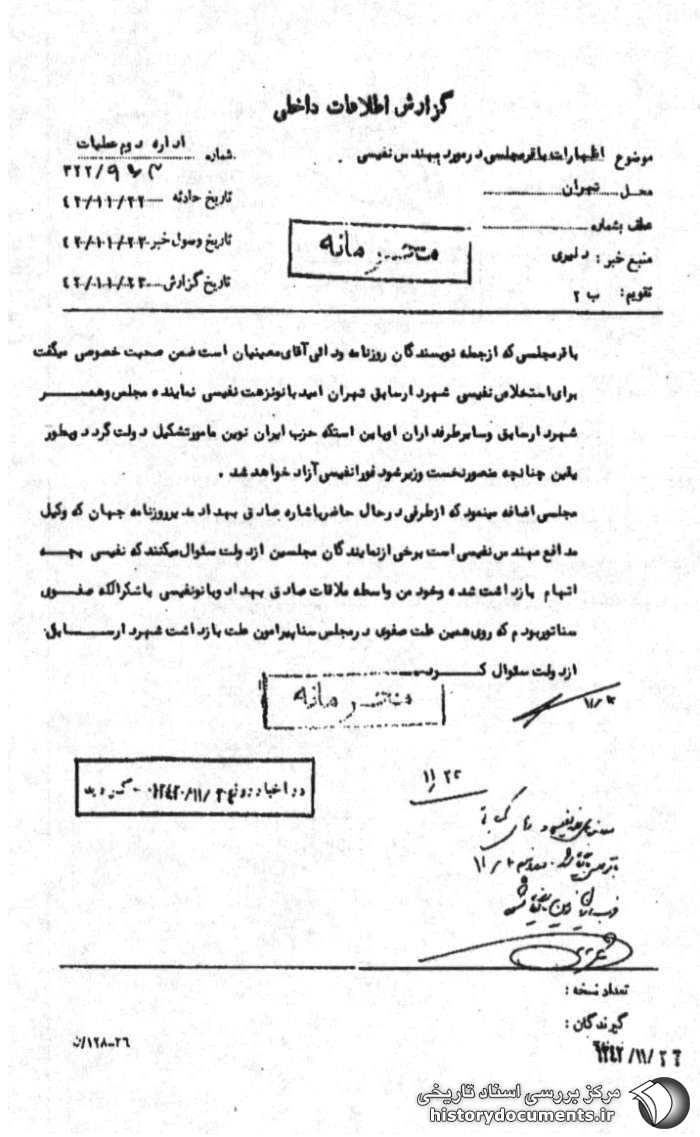 گزارش اطلاعات داخلی
موضوع اظهارات باقر مجلسی در مورد مهندس نفیسی
محل تهران
عطف بشماره
منبع خبر : دلیری
تقویم : ب ۲
اداره دوم عملیات
شماره ۳۲۲/۹
تاریخ حادثه ۴۲/۱۱/۲۲
تاریخ وصول خبر ۴۲/۱۱/۲۲
تاریخ گزارش ۴۲/۱۱/۲۳
محرمانه
باقر مجلسی که از جمله نویسندگان روزنامه ودائی آقای معینیان است ضمن صحبت خصوصی میگفت
برای استخلاص نفیسی شهردار سابق تهران امید بانو نزهت نفیسی نماینده مجلس و همسر
شهردار سابق و سایر طرفداران او باین است که حزب ایران نوین مامور تشکیل دولت گردد و بطور
یقین چنانچه منصور نخست وزیر شود فورا نفیسی آزاد خواهد شد .
مجلسی اضافه مینمود که از طرفی در حال حاضر باشاره صادق بهداد مدیر روزنامه جهان که وکیل
مدافع مهندس نفیسی است برخی از نمایندگان مجلسین از دولت سئوال میکنند که نفیسی بچه
اتهام بازداشت شده و خود من واسطه ملاقات صادق بهداد و بانو نفیسی با شکراله صفوی
سناتور بودم که روی همین علت صفوی در مجلس سنا پیرامون علت بازداشت شهردار سابق
از دولت سئوال کرد
محرمانه
در اخبار روز ۱۳۴۲/۱۱/۲۴ گردید
۱۱/۲۳
تعداد نسخه :
گیرندگان :
۱۳۴۲/۱۱/۲۶
۱۲۸-۲۶/ن
مرکز بررسی اسناد تاریخی
historydocuments.ir